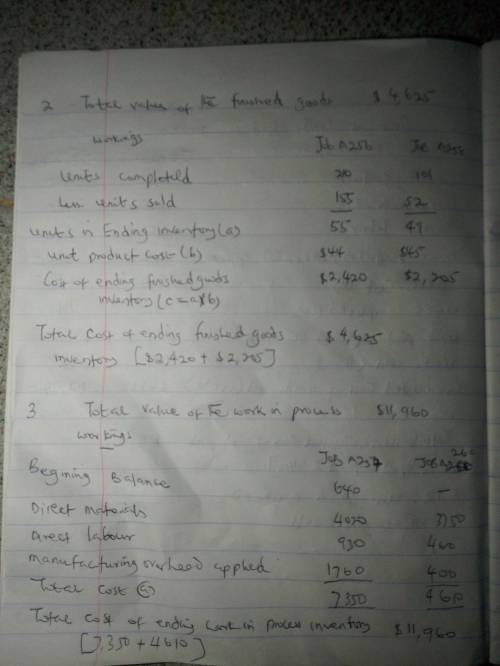 2 Total value of the finished goods $4,625
workings
Job A256 Job A258
Units completed 210 101
Less units sold 155 52
Units in Ending inventory (a) 55 49
Unit product cost (b) $44 $45
Cost of ending finished goods $2,420 $2,205
inventory (c = a x b)
Total cost of ending finished goods $4,625
inventory [$2,420 + $2,205]
3 Total value of the work in process $11,960
workings
Job A257 Job A260
Begining Balance 640 -
Direct materials 4020 3750
Direct labour 930 460
manufacturing overhead applied 1760 400
Total cost 7350 4610
Total cost of ending work in process inventory $11,960
[7,350 + 4610]